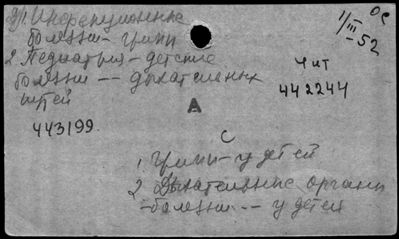 1. Инфекционные
болезни - грипп
2. Педиатрия - детские
болезни -- дыхательных
путей
443199.
ос
1/III-52
Чит
442244
А
С
1. Грипп - у детей
2. Дыхательные органы
- болезни -- у детей